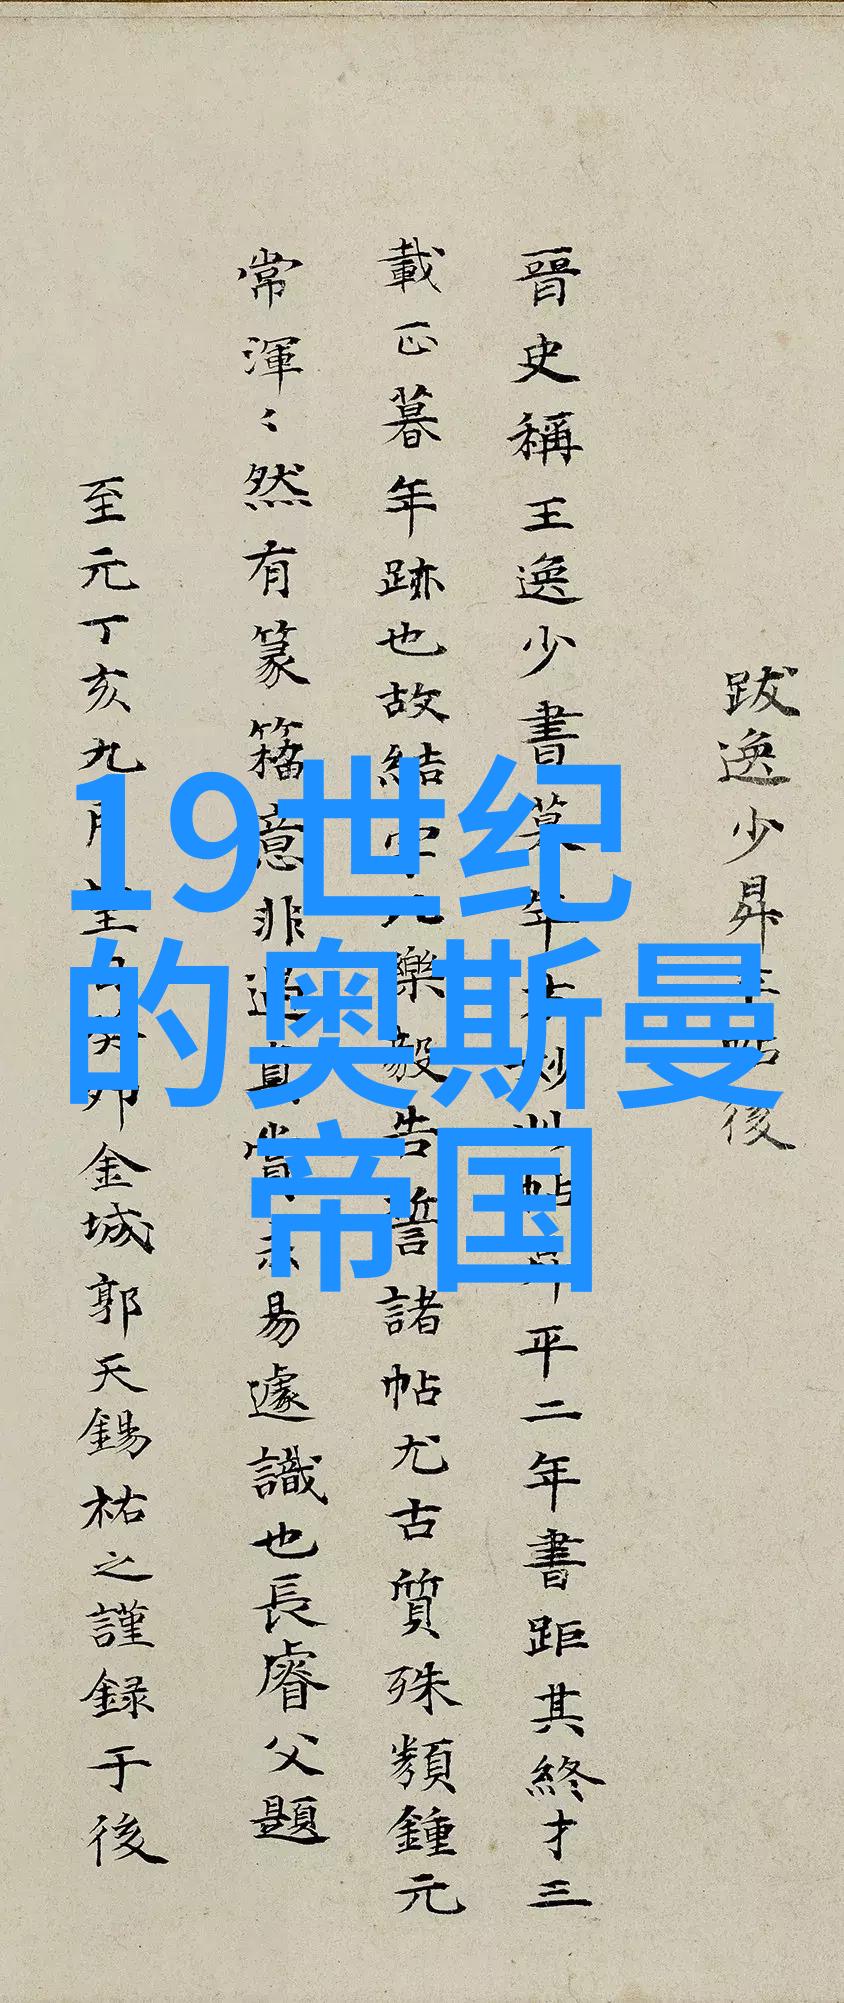 19世纪
的奥斯曼
帝国
跋逸少昇平帖後
晉史稱王逸少書暮年方妙此帖升平二年書距其終才三
載正暮年跡也故結字比樂毅告誓諸帖尤古質殊類鍾元
常渾〻然有篆籀意非遇真賞未易遽識也長睿父題
至元丁亥九月望日癸卯金城郭天錫祐之謹録于後